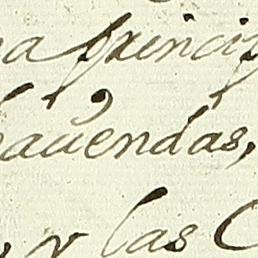 a princip
auendas,
y las C